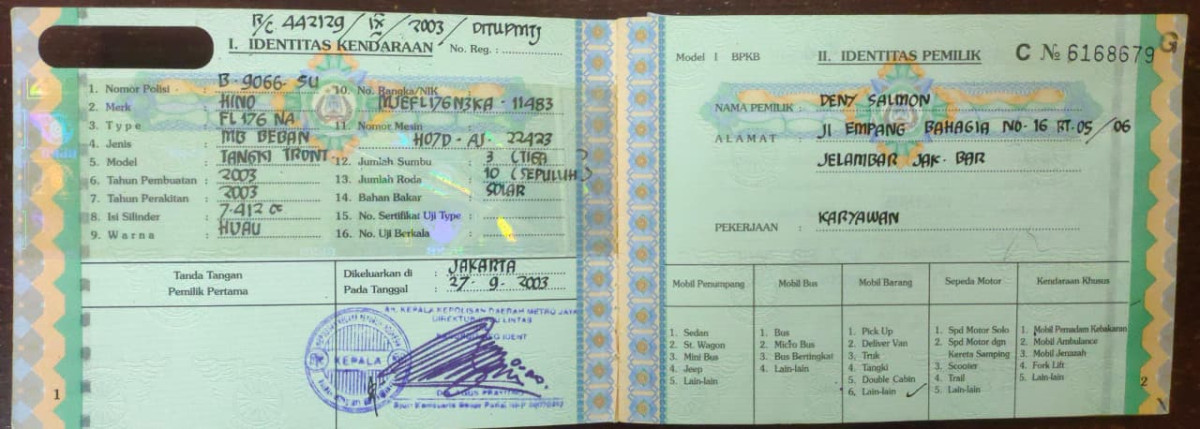 B/c 442129 / IX / 2003 / DITLLPMTJ
I. IDENTITAS KENDARAAN No. Reg. :
1. Nomor Polisi : B-9066-SU
2. Merk : HINO
3. Type : FL 176 NA
4. Jenis : MB BEBAN
5. Model : TANGKI TRONT
6. Tahun Pembuatan : 2003
7. Tahun Perakitan : 2003
8. Isi Silinder : 7.412 cc
9. Warna : HIJAU
10. No. Rangka/NIK : MJEFL176N3KA-11483
11. Nomor Mesin : HO7D-AJ-22423
12. Jumlah Sumbu : 3 (TIGA)
13. Jumlah Roda : 10 (SEPULUH)
14. Bahan Bakar : SOLAR
15. No. Sertifikat Uji Type :
16. No. Uji Berkala :
Tanda Tangan
Pemilik Pertama
Dikeluarkan di : JAKARTA
Pada Tanggal : 27-9-2003
AN. KEPALA KEPOLISIAN DAERAH METRO JAYA
KEPALA
1
Model I BPKB II. IDENTITAS PEMILIK C № 6168679 G
NAMA PEMILIK : DENY SALMON
ALAMAT : Jl EMPANG BAHAGIA NO-16 RT-05/06
JELAMBAR JAK-BAR
PEKERJAAN : KARYAWAN
Mobil Penumpang
1. Sedan
2. St. Wagon
3. Mini Bus
4. Jeep
5. Lain-lain
Mobil Bus
1. Bus
2. Micro Bus
3. Bus Bertingkat
4. Lain-lain
Mobil Barang
1. Pick Up
2. Deliver Van
3. Truk
4. Tangki
5. Double Cabin
6. Lain-lain
Sepeda Motor
1. Spd Motor Solo
2. Spd Motor dgn
Kereta Samping
3. Scooter
4. Trail
5. Lain-lain
Kendaraan Khusus
1. Mobil Pemadam Kebakaran
2. Mobil Ambulance
3. Mobil Jenazah
4. Fork Lift
5. Lain-lain
2